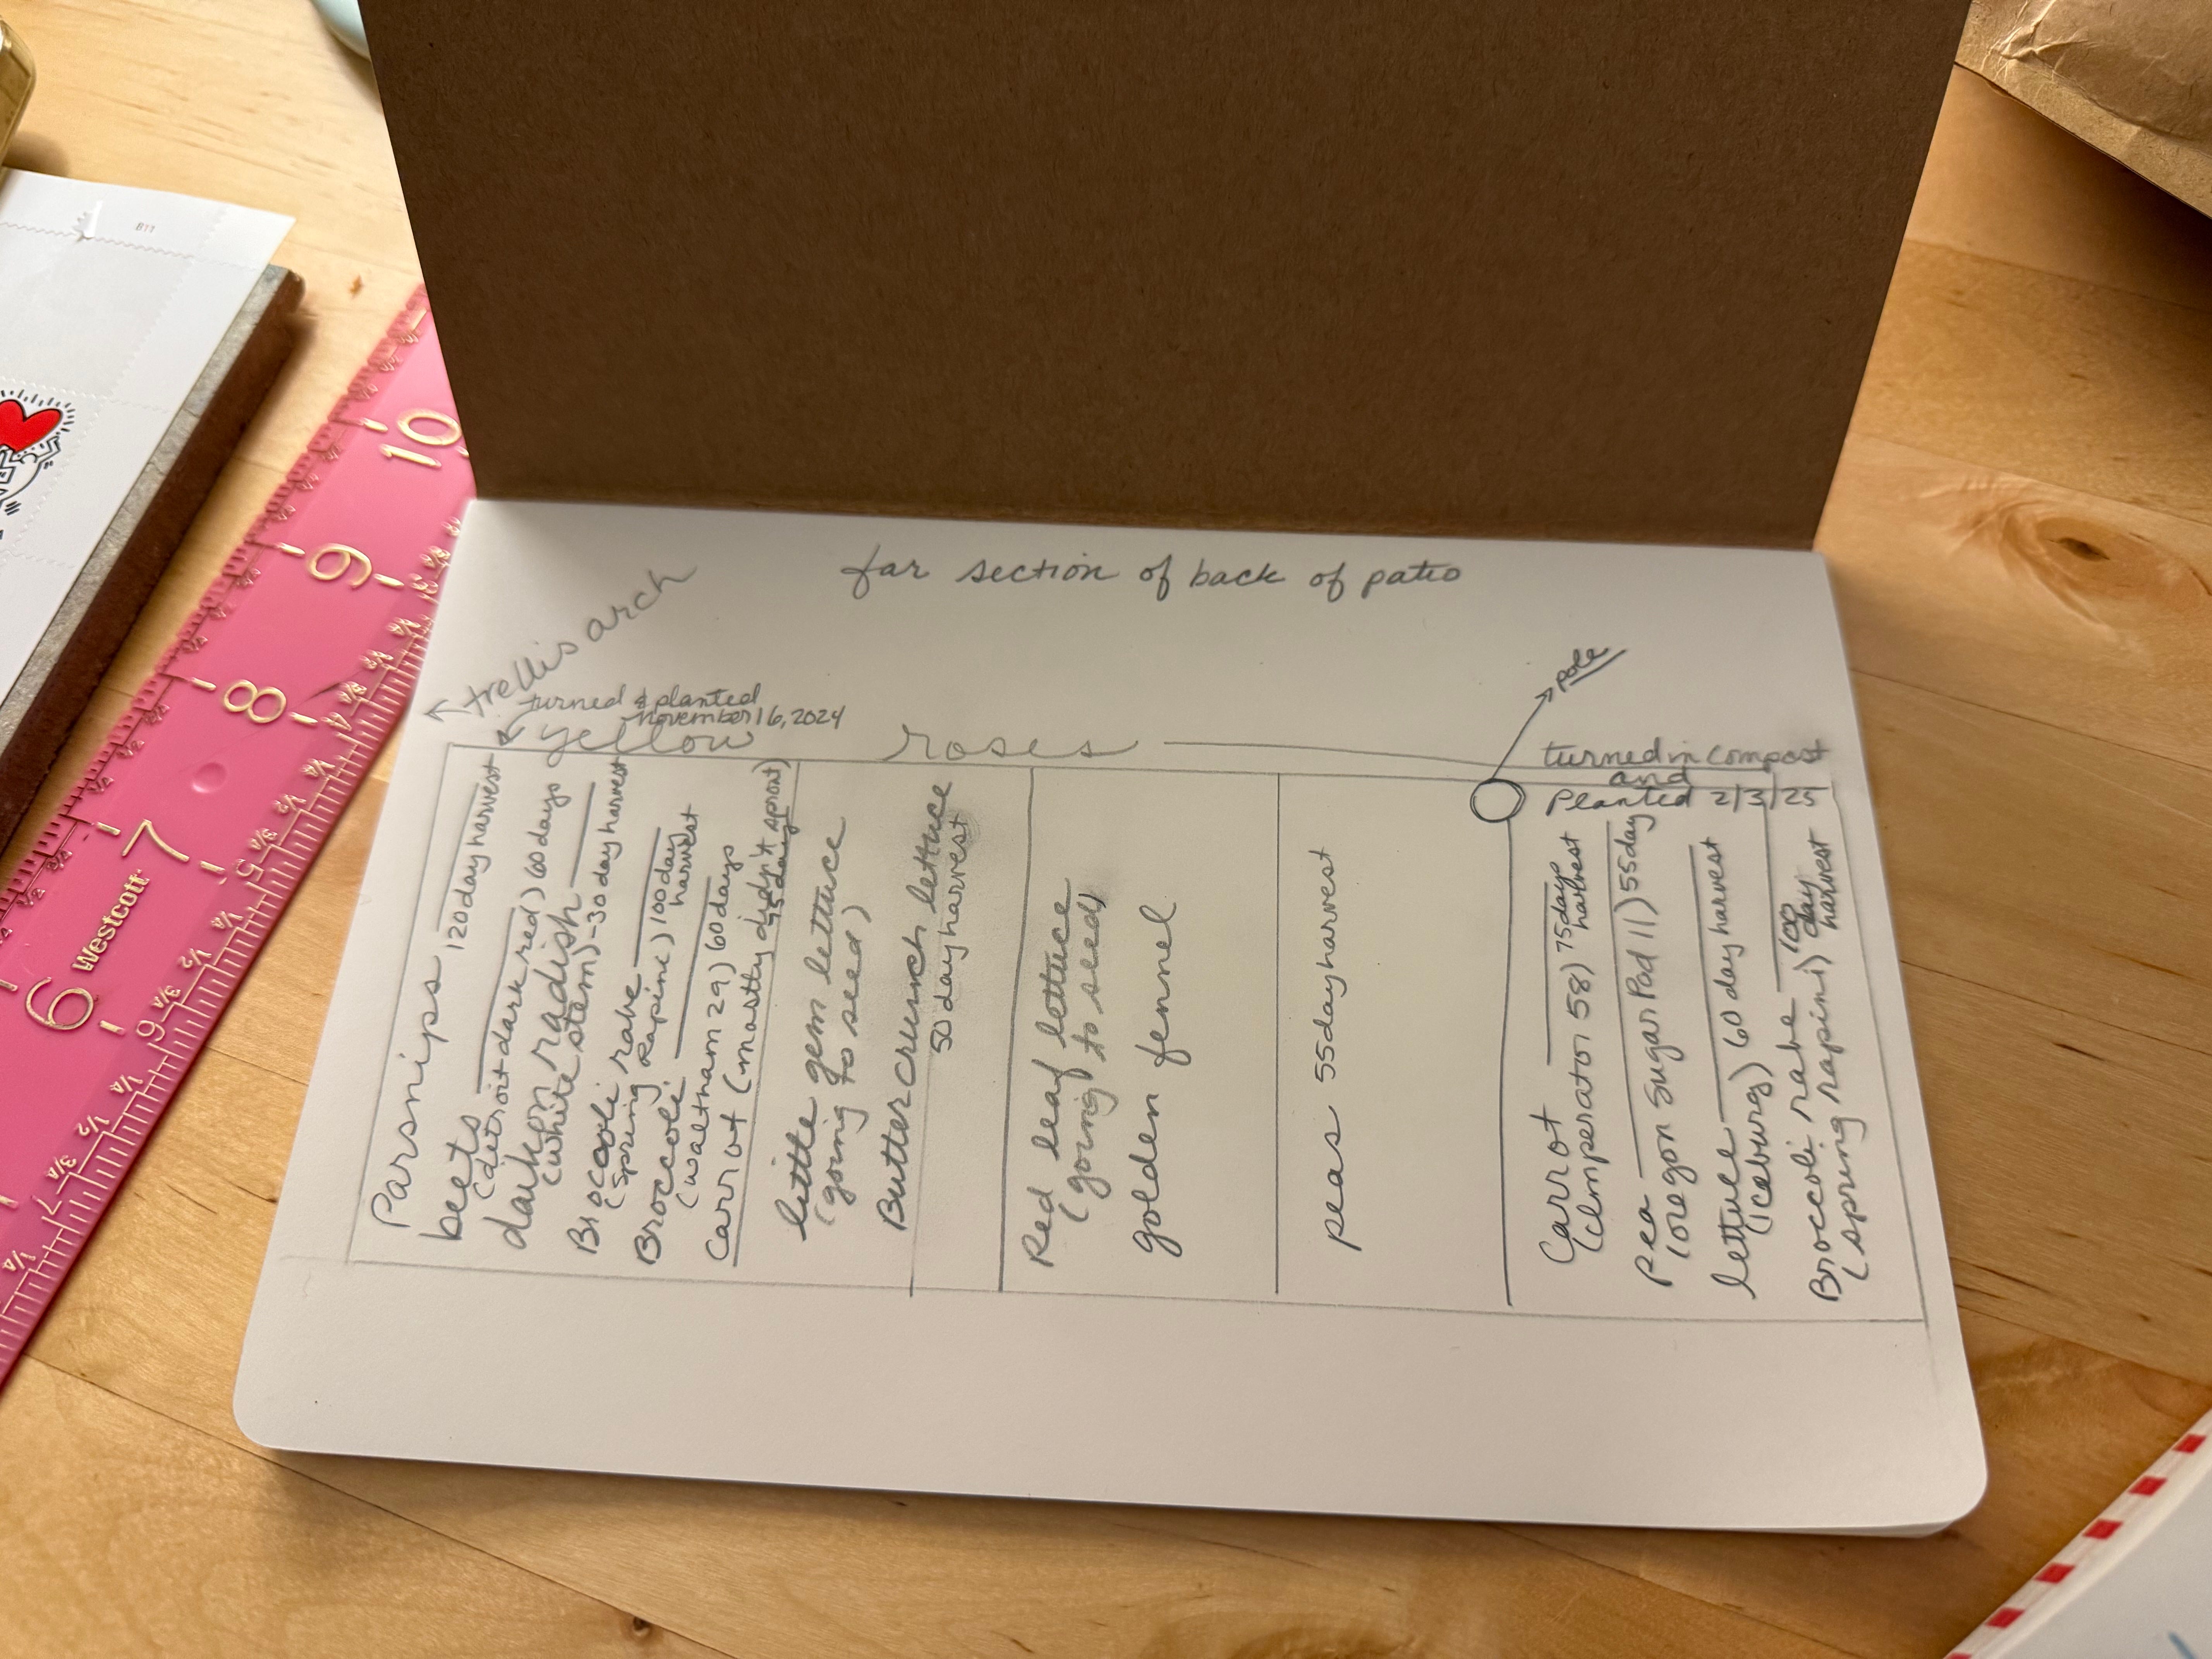 far section of back of patio
← trellis arch
turned & planted
november 16, 2024
yellow roses
pole
turned in compost
and
Planted 2/3/25
Parsnips 120 day harvest
beets
(detroit dark red) 60 days
daikon radish
(white stem) - 30 day harvest
Broccoli rabe
(Spring Rapine) 100 day
harvest
Broccoli
(waltham 29) 60 days
Carrot (mostly didn't sprout)
75 days
little gem lettuce
(going to seed)
Buttercrunch lettuce
50 day harvest
Red leaf lettuce
(going to seed)
golden fennel
peas 55 day harvest
Carrot
(Imperator 58) 75 days
harvest
Pea
(oregon Sugar Pod 11) 55 day
lettuce
(iceburg) 60 day harvest
Broccoli rabe
(spring rapini) 100
day
harvest
Westcott
10
9
8
7
6
811